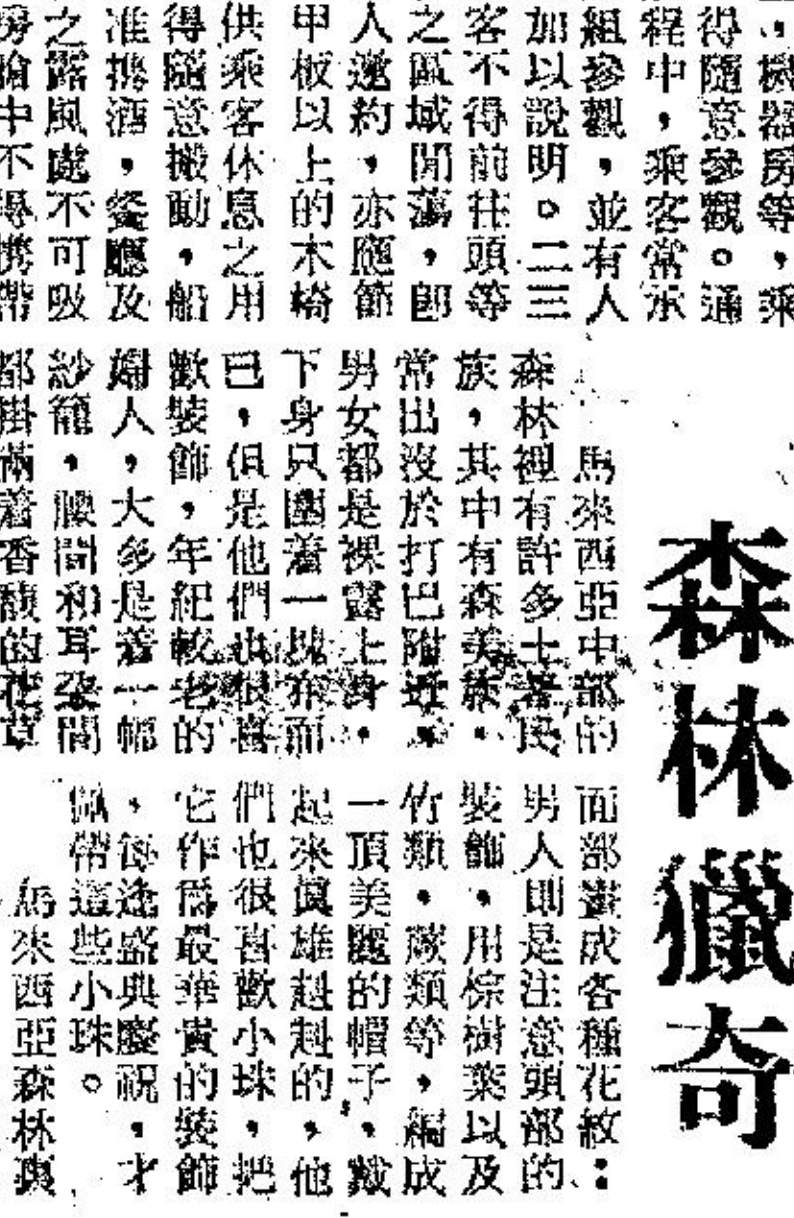 ，機器房等，乘
得隨意參觀。通
程中，乘客當承
組參觀，並有人
加以說明。二三
客不得前往頭等
之區域閒蕩，卽
人邀約，亦應節
甲板以上的木椅
供乘客休息之用
得隨意搬動，船
准携酒，餐廳及
之露風處不可吸
房艙中不得携帶
森林獵奇
馬來西亞中部的
森林裡有許多土著民
族，其中有森美族，
常出沒於打巴附近，
男女都是裸露上身，
下身只圍着一塊布而
已，但是他們也很喜
歡裝飾，年紀較老的
婦人，大多是着一幅
紗籠，腰間和耳朶間
都掛滿着香馥的花草
面部畫成各種花紋：
男人則是注意頭部的
裝飾，用棕樹葉以及
竹類，類等，編成
一頂美麗的帽子，戴
起來眞雄赳赳的，他
們也很喜歡小珠，把
它作爲最華貴的裝飾
，每逢盛典慶祝，才
佩帶這些小珠。
馬來西亞森林